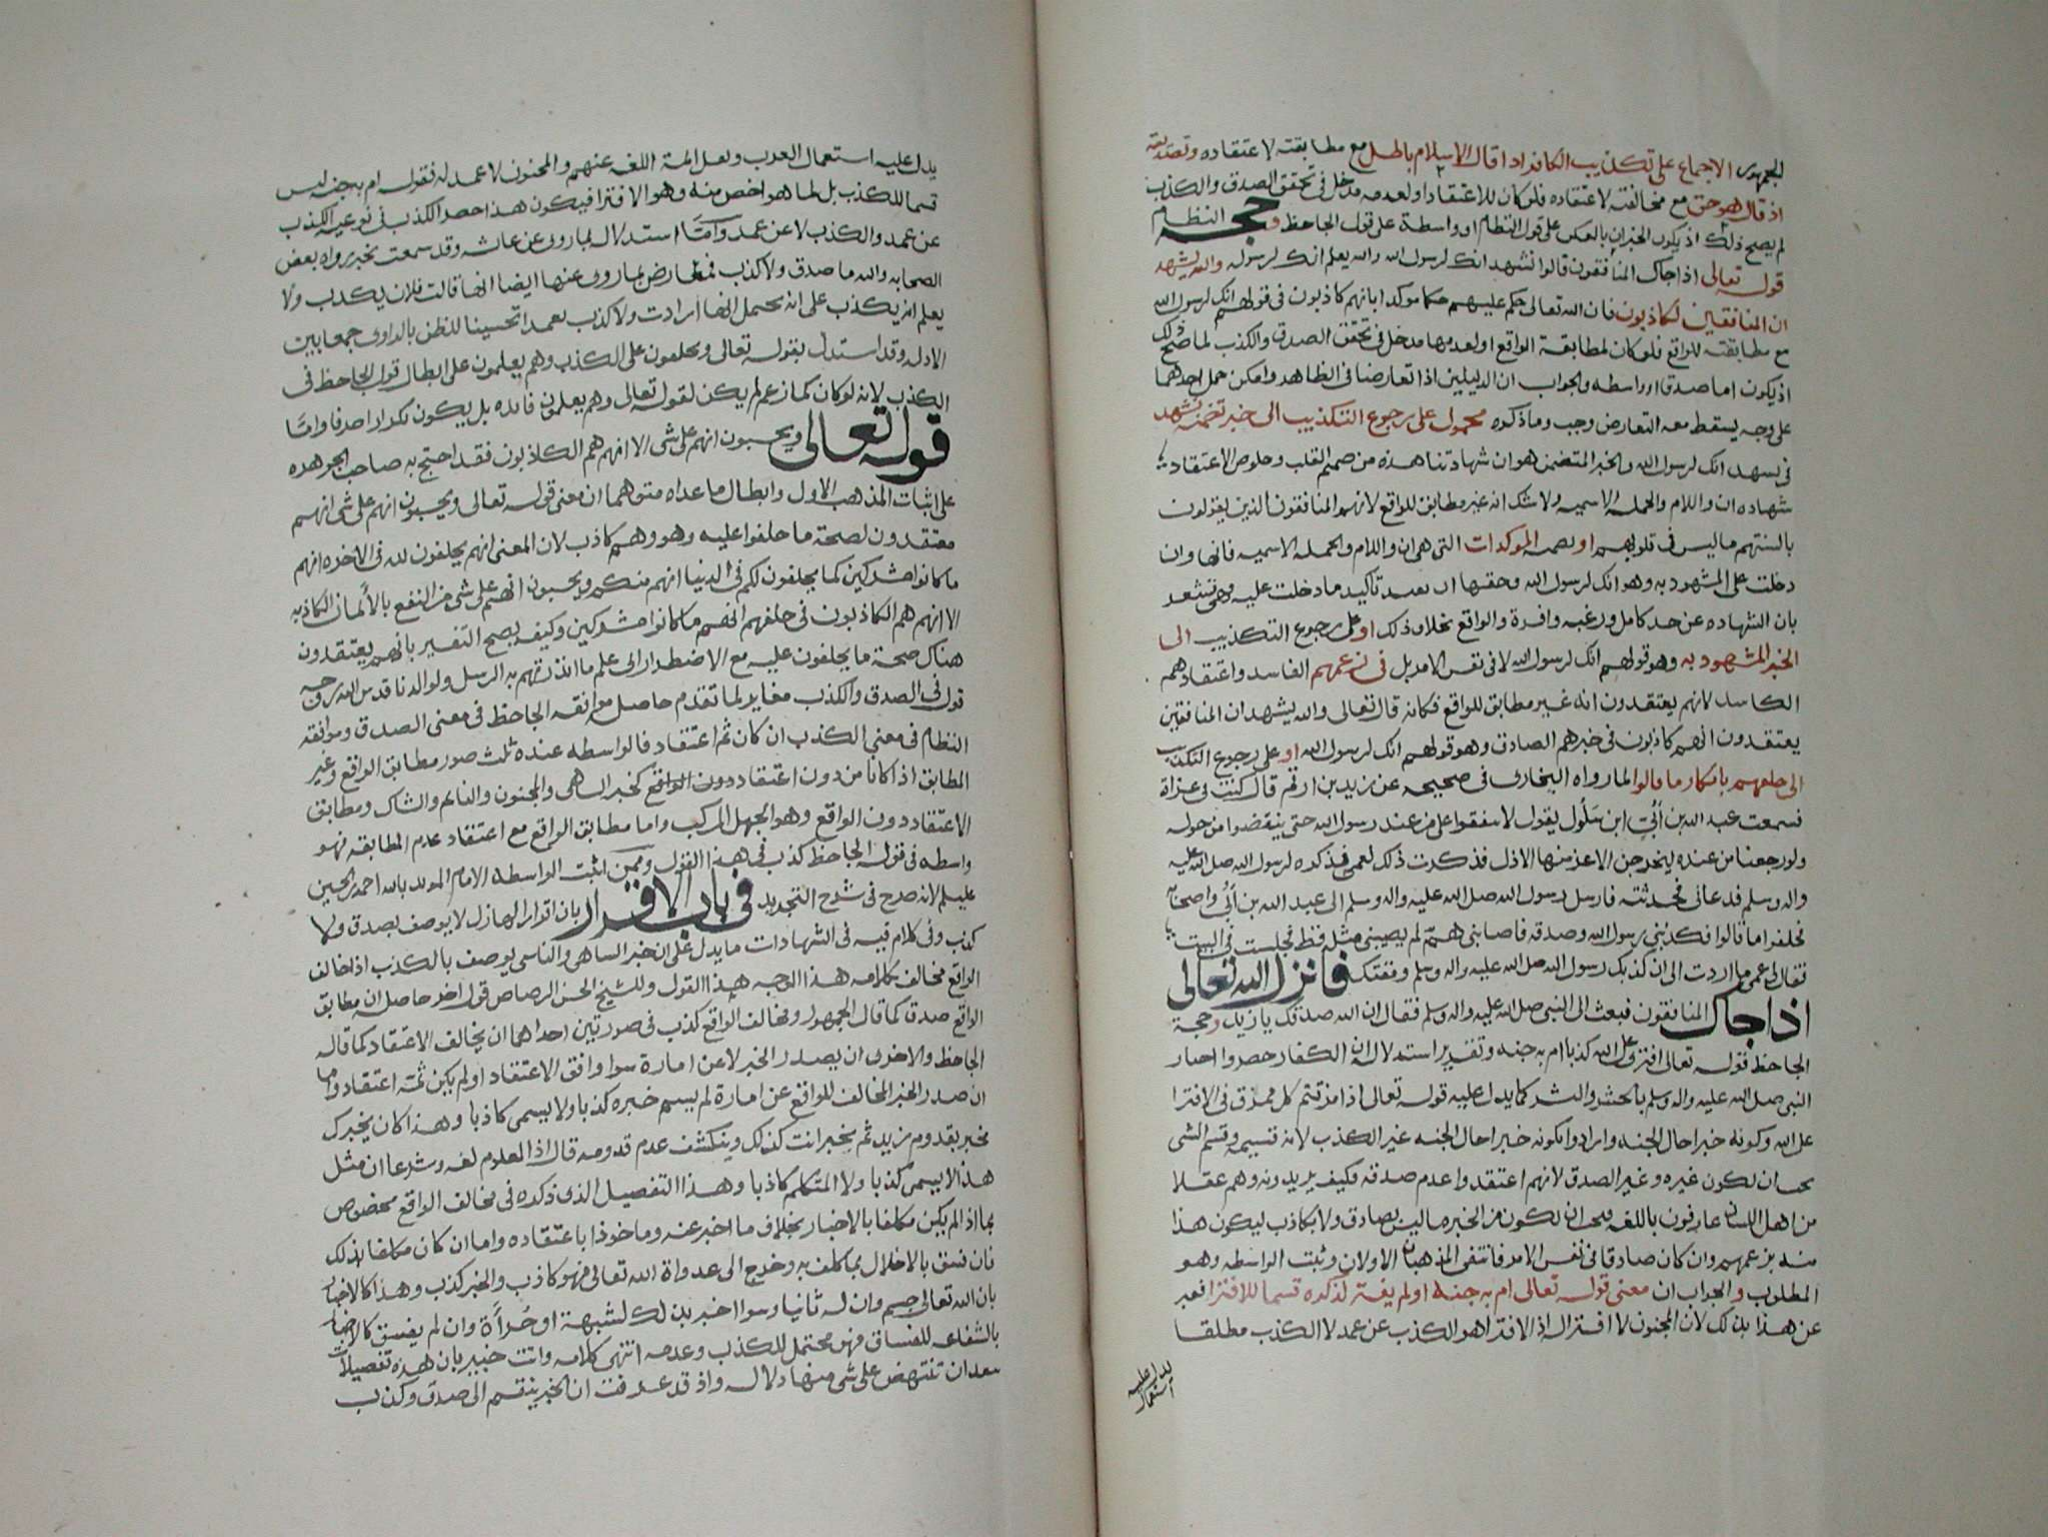 الجمهور الاجماع على تكذيب الكافر اذا قال الاسلام باطل مع مطابقته لاعتقاده وتصديقه
اذ قال هو حق مع مخالفته لاعتقاده فلو كان للاعتقاد او لعدمه مدخل فى تحقق الصدق والكذب
لم يصح ذلك اذ يكون الخبران بالعكس على قول النظام او واسطة على قول الجاحظ و حجه النظام
قوله تعالى اذا جاك المنافقون قالوا نشهد انك لرسول الله والله يعلم انك لرسوله والله يشهد
ان المنافقين لكاذبون فان الله تعالى حكم عليهم حكما موكدا بانهم كاذبون فى قولهم انك لرسول الله
مع مطابقته للواقع فلو كان لمطابقة الواقع او لعدمها مدخل فى تحقق الصدق والكذب لما صح ذلك
اذ يكون اما صدق او واسطه والجواب ان الدليلين اذا تعارضا فى الظاهر وامكن حمل احدهما
على وجه يسقط معه التعارض وجب وما ذكره محمول على رجوع التكذيب الى خبر تضمنه نشهد
فى نشهد انك لرسول الله والخبر المتضمن هو ان شهادتنا هذه من صميم القلب وخلوص الاعتقاد
شهاده ان واللام والجمله الاسميه ولا شك انه غير مطابق للواقع لانهم المنافقون الذين يقولون
بالسنتهم ما ليس فى قلوبهم او بصمه الموكدات التى هى ان واللام والجمله الاسميه فانها وان
دخلت على المشهود به وهو انك لرسول الله وحقها ان تعيد تاكيد ما دخلت عليه فهى تشعر
بان الشهاده عن حد كامل ورغبه وافرة والواقع بخلاف ذلك او على رجوع التكذيب الى
الخبر المشهود به وهو قولهم انك لرسول الله لا فى نفس الامر بل فى زعمهم الفاسد واعتقادهم
الكاسد لانهم يعتقدون انه غير مطابق للواقع فكانه قال تعالى والله يشهد ان المنافقين
يعتقدون انهم كاذبون فى خبرهم الصادق وهو قولهم انك لرسول الله او على رجوع التكذيب
الى حلفهم بانكار ما قالوا لما رواه البخارى فى صحيحه عن زيد بن ارقم قال كنت فى غزاة
فسمعت عبد الله بن أُبَىّ ابن سَلُول يقول لا تنفقوا على من عند رسول الله حتى ينفضوا من حوله
ولو رجعنا من عنده ليخرجن الاعز منها الاذل فذكرت ذلك لعمى فذكره لرسول الله صلى الله عليه
واله وسلم فدعانى فحدثته فارسل رسول الله صلى الله عليه واله وسلم الى عبد الله بن أُبَىّ واصحابه
فحلفوا ما قالوا فكذبنى رسول الله وصدقه فاصابنى هم لم يصيبنى مثله قط فجلست فى البيت
فقال لى عمى ما اردت الى ان كذبك رسول الله صلى الله عليه واله وسلم ومقتك فانزل الله تعالى
اذا جاك المنافقون فبعث الى النبى صلى الله عليه واله وسلم فقال ان الله صدقك يا زيد وحجة
الجاحظ قوله تعالى افترى على الله كذبا ام به جنه وتقرير استدلاله ان الكفار حصروا اخبار
النبى صلى الله عليه واله وسلم بالحشر والنشر كما يدل عليه قوله تعالى اذا مزقتم كل ممزق فى الافترا
على الله وكونه خبرا حال الجنه وارادوا بكونه خبرا حال الجنه غير الكذب لانه قسيمه وقسيم الشى
يجب ان يكون غيره وغير الصدق لانهم اعتقدوا عدم صدقه فكيف يريدونه وهم عقلا
من اهل اللسان عارفون باللغه فيجب ان يكون من الخبر ما ليس بصادق ولا بكاذب ليكون هذا
منه بزعمهم وان كان صادقا فى نفس الامر فانتفى المذهبان الاولان وثبتت الواسطه وهو
المطلوب والجواب ان معنى قوله تعالى ام به جنه او لم يفتر لذكره قسما للافترا فعبر
عن هذا بذلك لان المجنون لا افترا له اذ الافترا هو الكذب عن عمد لا الكذب مطلقا
يدل عليه استعمال
يدل عليه استعمال العرب ونقل ائمة اللغه عنهم والمجنون لا عمد له فقوله ام به جنه ليس
قسما للكذب بل لما هو اخص منه وهو الافترا فيكون هذا حصر الكذب فى نوعيه الكذب
عن عمد والكذب لا عن عمد وأمَّا استدلال بما روى عن عائشه وقد سمعت بخبر رواه بعض
الصحابه والله ما صدق ولا كذب فمعارض بما روى عنها ايضا انها قالت فلان يكذب ولا
يعلم انه يكذب على انه يحتمل انها ارادت ولا كذب تعمدا تحسينا للظن بالراوى جمعا بين
الادله وقد استدل بقوله تعالى ويحلفون على الكذب وهم يعلمون على ابطال قول الجاحظ فى
الكذب لانه لو كان كما زعم لم يكن لقوله تعالى وهم يعلمون فائده بل يكون تكرارا صرفا وامَّا
قوله تعالى ويحسبون انهم على شى الا انهم هم الكاذبون فقد احتج به صاحب الجوهره
على اثبات المذهب الاول وابطال ما عداه متوهما ان معنى قوله تعالى ويحسبون انهم على شى انهم
معتقدون لصحة ما حلفوا عليه وهو وهم كاذب لان المعنى انهم يحلفون لله فى الاخره انهم
ما كانوا مشركين كما يحلفون لكم فى الدنيا انهم منكم ويحسبون انهم على شى من النفع بالأيمان الكاذبه
الا انهم هم الكاذبون فى حلفهم انهم ما كانوا مشركين وكيف يصح التفسير بانهم يعتقدون
هناك صحة ما يحلفون عليه مع الاضطرار الى علم ما انذرتهم به الرسل ولوالدنا قدس الله روحه
قول فى الصدق والكذب مغاير لما تقدم حاصله موافقه الجاحظ فى معنى الصدق وموافقه
النظام فى معنى الكذب ان كان ثم اعتقاد فالواسطه عنده ثلث صور مطابق الواقع وغير
المطابق اذا كانا من دون اعتقاد دون الواقع كخبر الساهى والمجنون والنائم والشاك ومطابق
الاعتقاد دون الواقع وهو الجهل المركب واما مطابق الواقع مع اعتقاد عدم المطابقه فهو
واسطه فى قول الجاحظ كذب فى هذا القول وممن اثبت الواسطه الامام المويد بالله احمد بن الحسين
عليلم لانه صرح فى شرح التجريد فى باب الاقرار بان اقرار الهازل لا يوصف بصدق ولا
كذب وفى كلام فيه فى الشهادات ما يدل على ان خبر الساهى والناسى يوصف بالكذب اذا خالف
الواقع مخالف كلامه هذا الوجه هذا القول وللشيخ الحسن الرصاص قول اخر حاصله ان مطابق
الواقع صدق كما قال الجمهور ومخالف الواقع كذب فى صورتين احداهما ان يخالف الاعتقاد كما قاله
الجاحظ والاخرى ان يصدر الخبر لا عن امارة سوا وافق الاعتقاد او لم يكن ثمة اعتقاد واما
ان صدر الخبر المخالف للواقع عن امارة لم يسم خبره كذبا ولا يسمى كاذبا وهذا كان يخبرك
مخبر بقدوم زيد ثم يخبر انت كذلك وينكشف عدم قدومه قال اذ المعلوم لغه وشرعا ان مثل
هذا لا يسمى كذبا ولا المتكلم كاذبا وهذا التفصيل الذى ذكره فى مخالف الواقع مخصوص
بما اذا لم يكن مكلفا بالاخبار بخلاف ما اخبر عنه وماخوذا باعتقاده واما ان كان مكلفا بذلك
فان فسق بالاخلال بما كلف به وخرج الى عداوة الله تعالى فهو كاذب والخبر كذب وهذا كالاخبار
بان الله تعالى جسم وان له ثانيا وسوا اخبر بذلك لشبهة او جُرأَة وان لم يفسق كالاخبار
بالشفاعه للفساق فهو محتمل للكذب وعدمه انتهى كلامه وانت خبير بان هذه تفصيلات
يبعد ان تنتهض على شى منها دلاله واذ قد عرفت ان الخبر ينقسم الى صدق وكذب